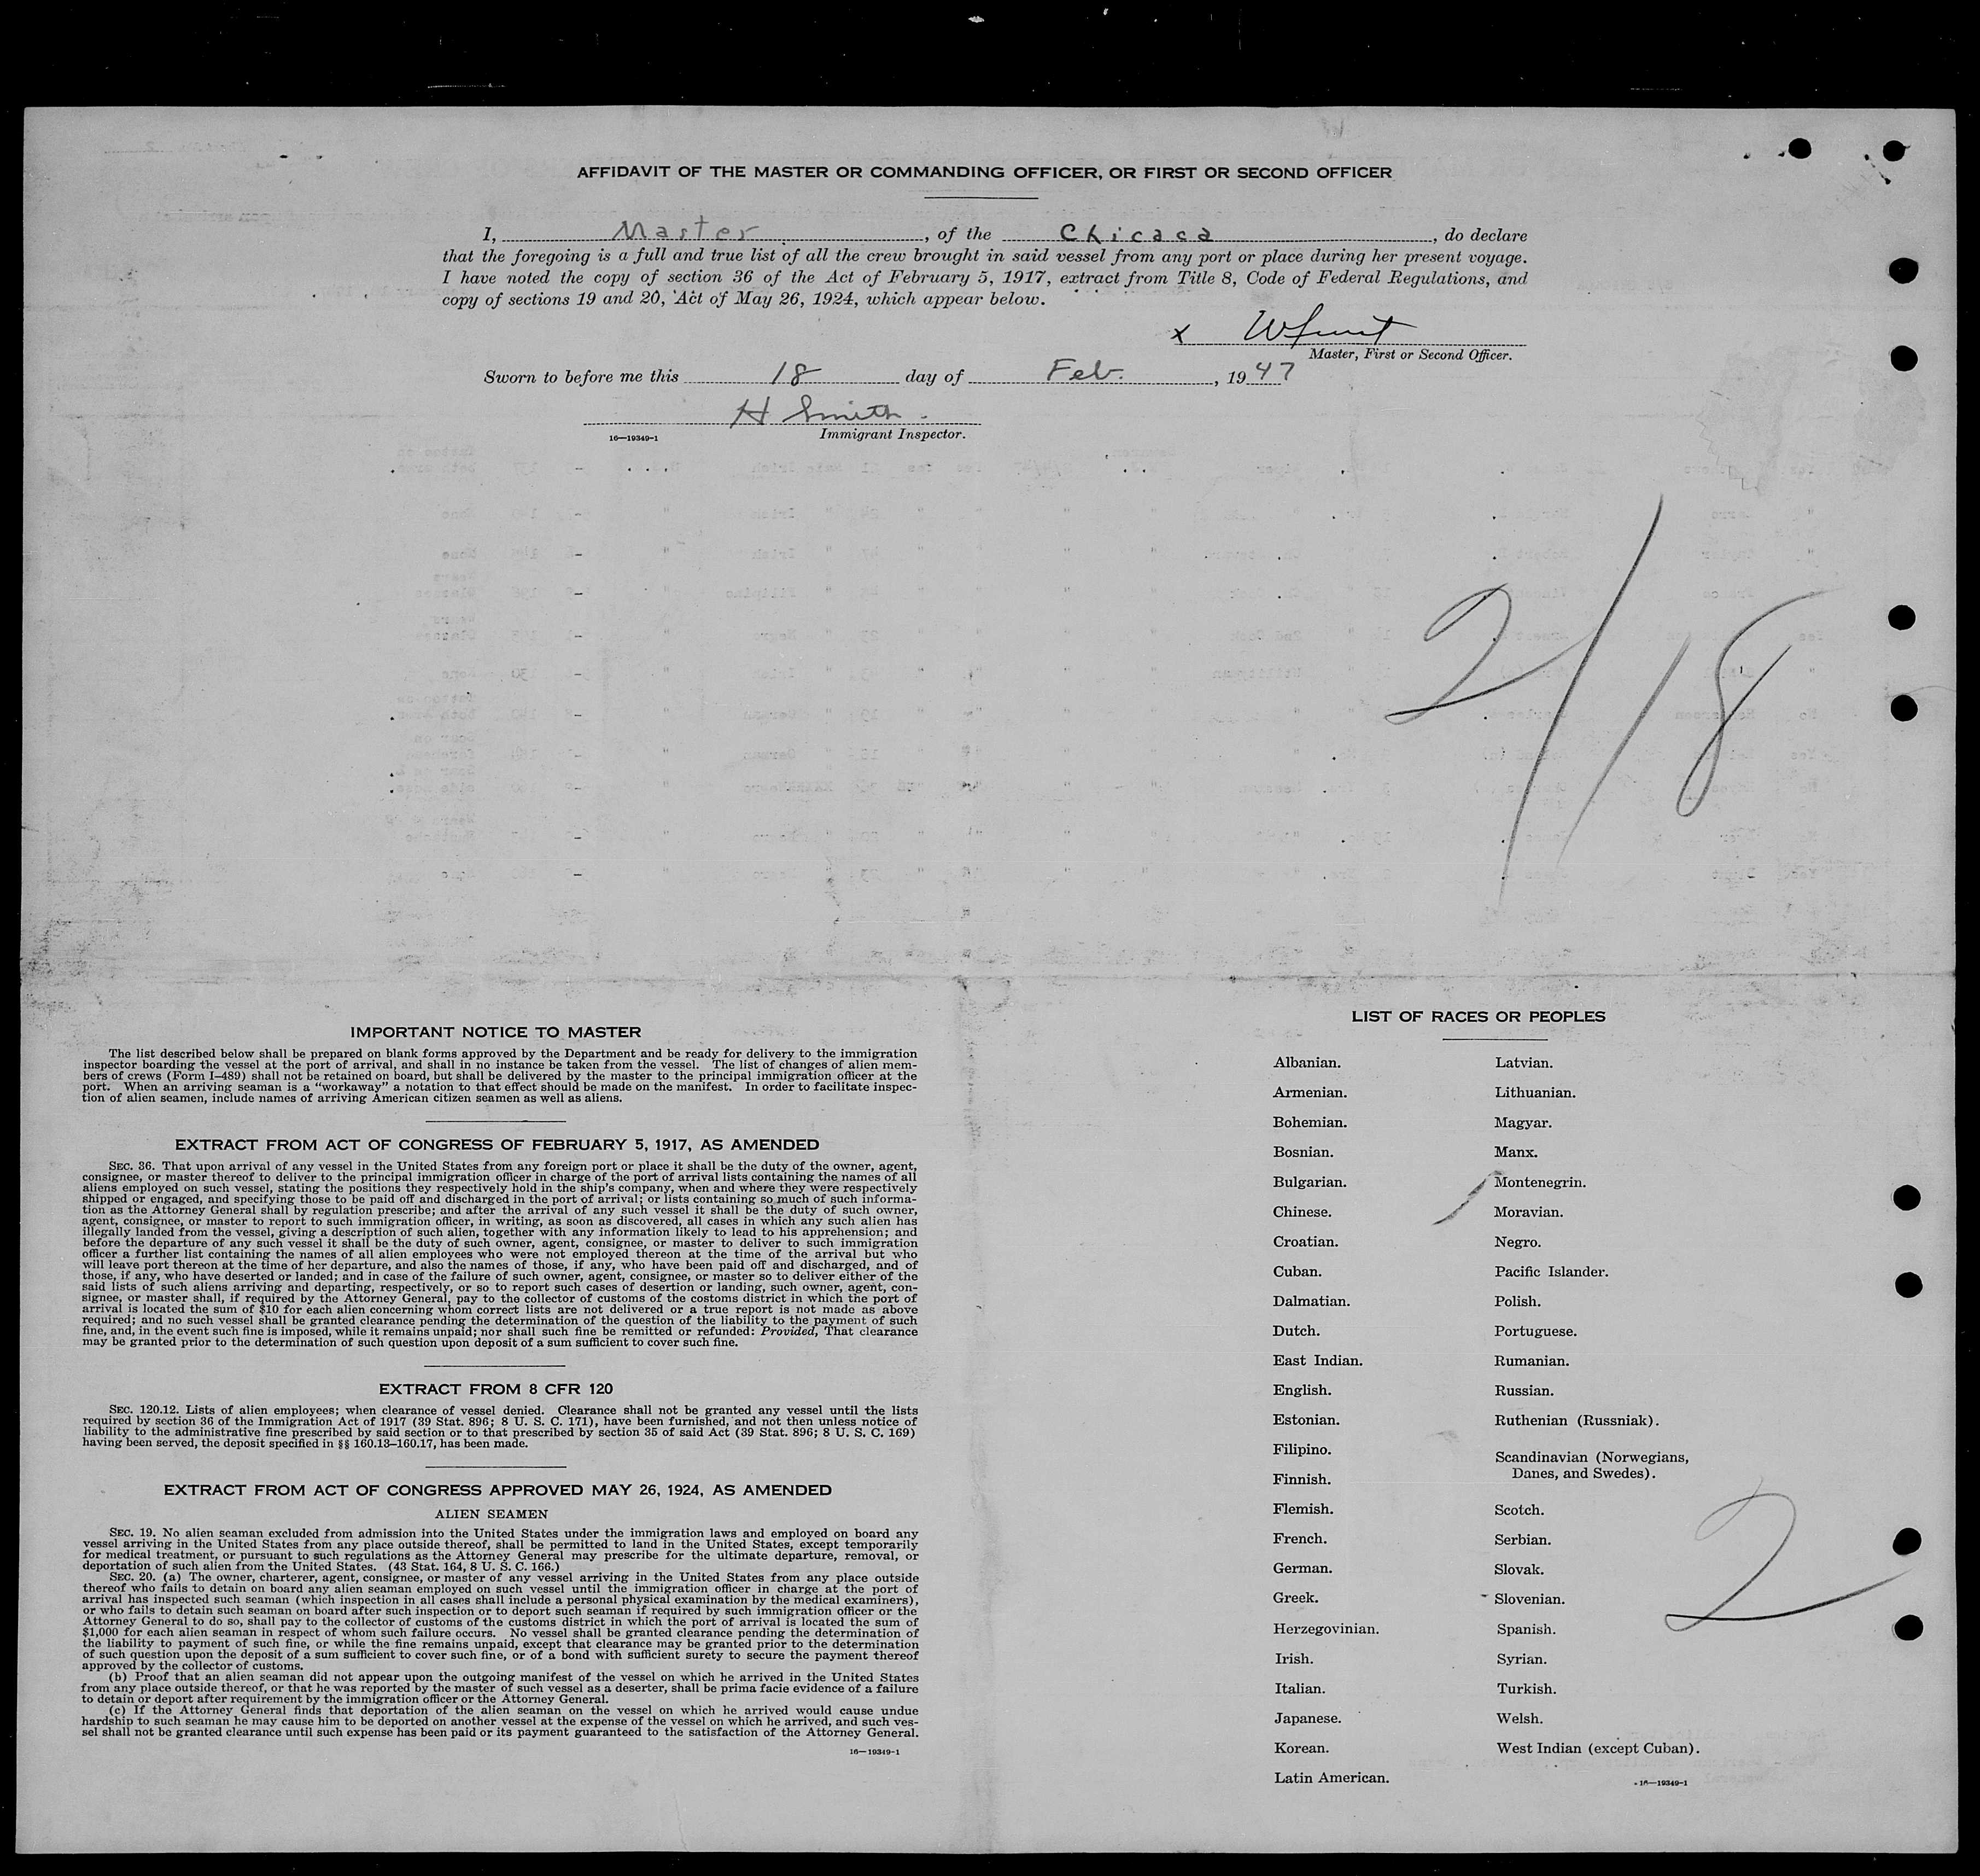 AFFIDAVIT OF THE MASTER OR COMMANDING OFFICER, OR FIRST OR SECOND OFFICER
I, Master, of the Chicaca, do declare
that the foregoing is a full and true list of all the crew brought in said vessel from any port or place during her present voyage.
I have noted the copy of section 36 of the Act of February 5, 1917, extract from Title 8, Code of Federal Regulations, and
copy of sections 19 and 20, Act of May 26, 1924, which appear below.
x
Master, First or Second Officer.
Sworn to before me this 18 day of Feb., 1947
H Smith
16—19349-1 Immigrant Inspector.
2/18
IMPORTANT NOTICE TO MASTER
The list described below shall be prepared on blank forms approved by the Department and be ready for delivery to the immigration
inspector boarding the vessel at the port of arrival, and shall in no instance be taken from the vessel. The list of changes of alien mem-
bers of crews (Form I-489) shall not be retained on board, but shall be delivered by the master to the principal immigration officer at the
port. When an arriving seaman is a "workaway" a notation to that effect should be made on the manifest. In order to facilitate inspec-
tion of alien seamen, include names of arriving American citizen seamen as well as aliens.
EXTRACT FROM ACT OF CONGRESS OF FEBRUARY 5, 1917, AS AMENDED
SEC. 36. That upon arrival of any vessel in the United States from any foreign port or place it shall be the duty of the owner, agent,
consignee, or master thereof to deliver to the principal immigration officer in charge of the port of arrival lists containing the names of all
aliens employed on such vessel, stating the positions they respectively hold in the ship's company, when and where they were respectively
shipped or engaged, and specifying those to be paid off and discharged in the port of arrival; or lists containing so much of such informa-
tion as the Attorney General shall by regulation prescribe; and after the arrival of any such vessel it shall be the duty of such owner,
agent, consignee, or master to report to such immigration officer, in writing, as soon as discovered, all cases in which any such alien has
illegally landed from the vessel, giving a description of such alien, together with any information likely to lead to his apprehension; and
before the departure of any such vessel it shall be the duty of such owner, agent, consignee, or master to deliver to such immigration
officer a further list containing the names of all alien employees who were not employed thereon at the time of the arrival but who
will leave port thereon at the time of her departure, and also the names of those, if any, who have been paid off and discharged, and of
those, if any, who have deserted or landed; and in case of the failure of such owner, agent, consignee, or master so to deliver either of the
said lists of such aliens arriving and departing, respectively, or so to report such cases of desertion or landing, such owner, agent, con-
signee, or master shall, if required by the Attorney General, pay to the collector of customs of the costoms district in which the port of
arrival is located the sum of $10 for each alien concerning whom correct lists are not delivered or a true report is not made as above
required; and no such vessel shall be granted clearance pending the determination of the question of the liability to the payment of such
fine, and, in the event such fine is imposed, while it remains unpaid; nor shall such fine be remitted or refunded: Provided, That clearance
may be granted prior to the determination of such question upon deposit of a sum sufficient to cover such fine.
EXTRACT FROM 8 CFR 120
SEC. 120.12. Lists of alien employees; when clearance of vessel denied. Clearance shall not be granted any vessel until the lists
required by section 36 of the Immigration Act of 1917 (39 Stat. 896; 8 U. S. C. 171), have been furnished, and not then unless notice of
liability to the administrative fine prescribed by said section or to that prescribed by section 35 of said Act (39 Stat. 896; 8 U. S. C. 169)
having been served, the deposit specified in §§ 160.13–160.17, has been made.
EXTRACT FROM ACT OF CONGRESS APPROVED MAY 26, 1924, AS AMENDED
ALIEN SEAMEN
SEC. 19. No alien seaman excluded from admission into the United States under the immigration laws and employed on board any
vessel arriving in the United States from any place outside thereof, shall be permitted to land in the United States, except temporarily
for medical treatment, or pursuant to such regulations as the Attorney General may prescribe for the ultimate departure, removal, or
deportation of such alien from the United States. (43 Stat. 164, 8 U. S. C. 166.)
SEC. 20. (a) The owner, charterer, agent, consignee, or master of any vessel arriving in the United States from any place outside
thereof who fails to detain on board any alien seaman employed on such vessel until the immigration officer in charge at the port of
arrival has inspected such seaman (which inspection in all cases shall include a personal physical examination by the medical examiners),
or who fails to detain such seaman on board after such inspection or to deport such seaman if required by such immigration officer or the
Attorney General to do so, shall pay to the collector of customs of the customs district in which the port of arrival is located the sum of
$1,000 for each alien seaman in respect of whom such failure occurs. No vessel shall be granted clearance pending the determination of
the liability to payment of such fine, or while the fine remains unpaid, except that clearance may be granted prior to the determination
of such question upon the deposit of a sum sufficient to cover such fine, or of a bond with sufficient surety to secure the payment thereof
approved by the collector of customs.
(b) Proof that an alien seaman did not appear upon the outgoing manifest of the vessel on which he arrived in the United States
from any place outside thereof, or that he was reported by the master of such vessel as a deserter, shall be prima facie evidence of a failure
to detain or deport after requirement by the immigration officer or the Attorney General.
(c) If the Attorney General finds that deportation of the alien seaman on the vessel on which he arrived would cause undue
hardship to such seaman he may cause him to be deported on another vessel at the expense of the vessel on which he arrived, and such ves-
sel shall not be granted clearance until such expense has been paid or its payment guaranteed to the satisfaction of the Attorney General.
16—19349-1
LIST OF RACES OR PEOPLES
Albanian.
Armenian.
Bohemian.
Bosnian.
Bulgarian.
Chinese.
Croatian.
Cuban.
Dalmatian.
Dutch.
East Indian.
English.
Estonian.
Filipino.
Finnish.
Flemish.
French.
German.
Greek.
Herzegovinian.
Irish.
Italian.
Japanese.
Korean.
Latin American.
Latvian.
Lithuanian.
Magyar.
Manx.
Montenegrin.
Moravian.
Negro.
Pacific Islander.
Polish.
Portuguese.
Rumanian.
Russian.
Ruthenian (Russniak).
Scandinavian (Norwegians,
Danes, and Swedes).
Scotch.
Serbian.
Slovak.
Slovenian.
Spanish.
Syrian.
Turkish.
Welsh.
West Indian (except Cuban).
16—19349-1
2